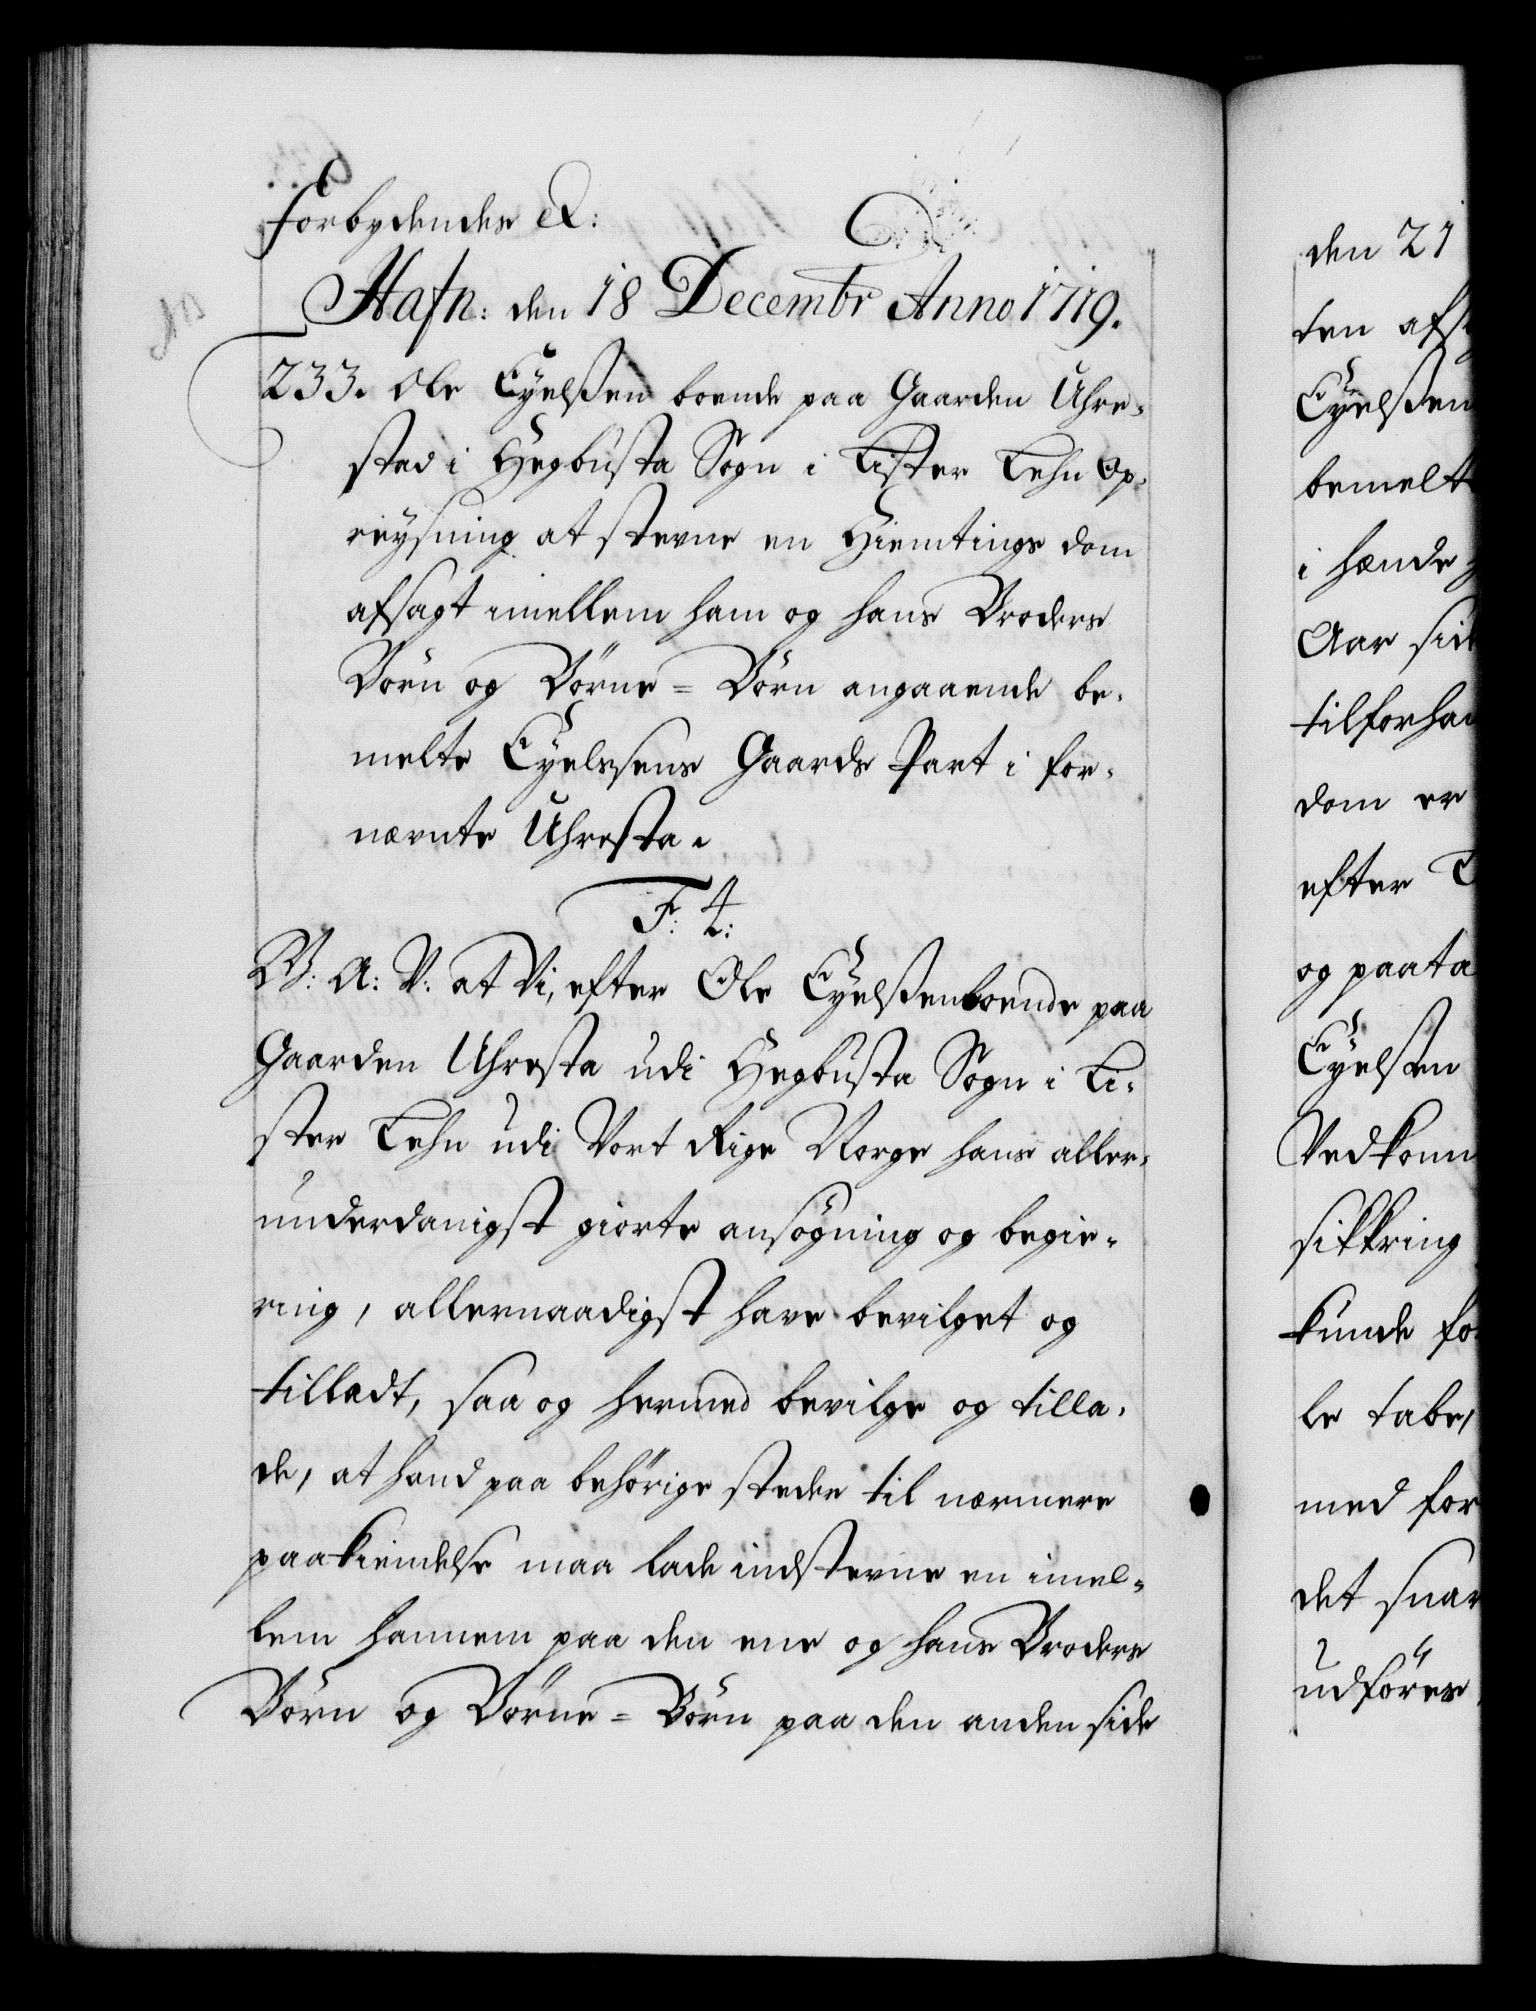 Forbydendes etc:
Hafn: den 18 Decembr Anno 1719.
233. Ole Eyelßen boende paa Gaarden Uhre-
stad i Hegbusta Sogn i Lister Lehn Op-
reysning at stevne en Hiemtings dom
afsagt imellem ham og hans Broders
Börn og Börne = Börn angaaende be-
melte Eyelssens Gaards Part i for-
nævnte Uhresta.
F: 4:
W: A: V: at Vi, efter Ole Eyelßen boende paa
Gaarden Uhresta udi Hegbusta Sogn i Li-
ster Lehn udi Vort Rige Norge hans aller-
underdanigst giorte ansögning og begie-
ring, allernaadigst have bevilget og
tilladt, saa og hermed bevilge og tilla-
de, at hand paa behörige steder til nærmere
paakiendelse maa lade indstevne en imel-
lem hannem paa den ene og hans Broders
Börn og Börne = Börn paa den anden side
den 21
ten afs
Eyelßen
bemelt
i hænde
Aar sid
tilforhan
dom er
efter
og paata
Eyelßen
Vedkom
sikkring
kunde for
le tabe,
med for
det snar
udföres